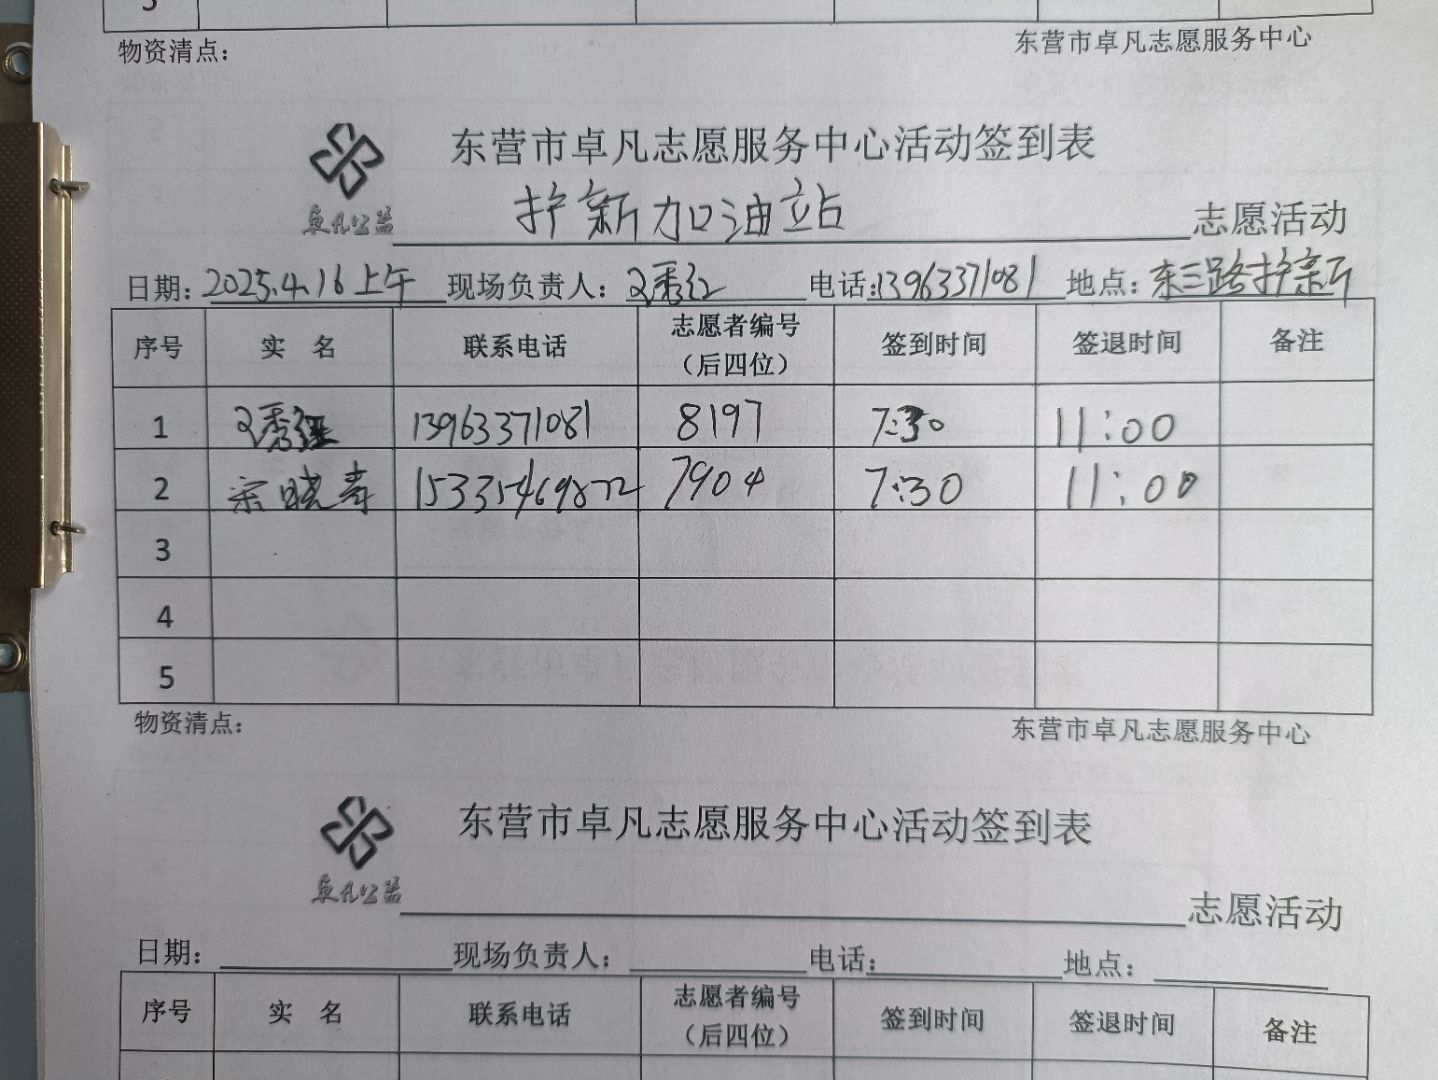 5
物资清点：
东营市卓凡志愿服务中心
东营市卓凡志愿服务中心活动签到表
卓凡公益
护新加油站 志愿活动
日期：2025.4.16上午 现场负责人：秀红 电话：13963371081 地点：东三路护新所
序号 实 名 联系电话 志愿者编号（后四位） 签到时间 签退时间 备注
1 秀红 13963371081 8197 7:30 11:00
2 宋晓青 7904 7:30 11:00
3
4
5
物资清点：
东营市卓凡志愿服务中心
东营市卓凡志愿服务中心活动签到表
卓凡公益
志愿活动
日期： 现场负责人： 电话： 地点：
序号 实 名 联系电话 志愿者编号（后四位） 签到时间 签退时间 备注